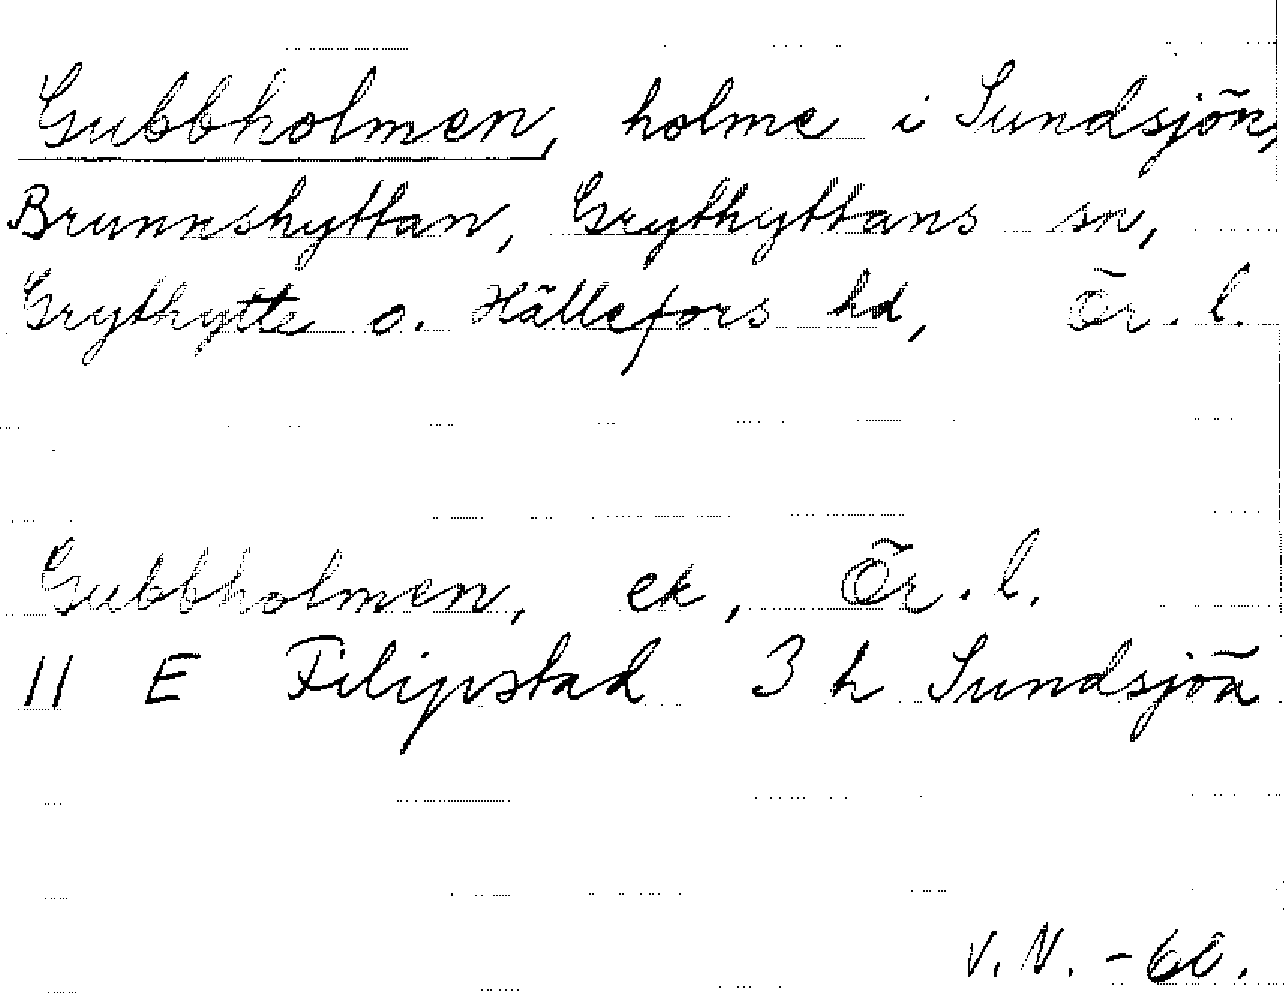 Gubbholmen, holme i Sundsjön,
Brunnshyttan, Grythyttans sn,
Grythytte o. Hällefors hd, Ör. l.
Gubbholmen, ek, Ör. l.
11 E Filipstad 3 h Sundsjön
V. N. - 60.